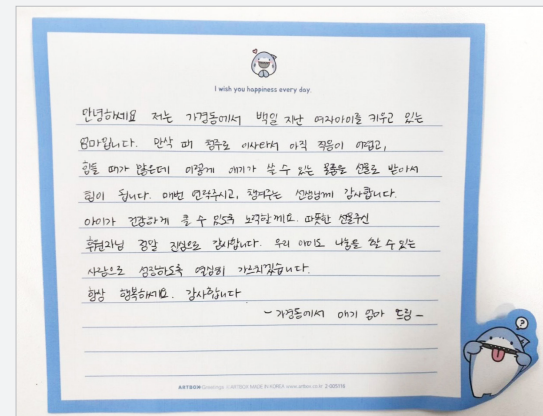 I wish you happiness every day.
안녕하세요 저는 가경동에서 백일 지난 여자아이를 키우고 있는
엄마입니다. 만삭 때 청주로 이사와서 아직 적응이 어렵고,
힘들 때가 많은데 이렇게 애기가 쓸 수 있는 물품을 선물로 받아서
힘이 됩니다. 매번 연락주시고, 챙겨주는 선생님께 감사합니다.
아이가 건강하게 클 수 있도록 노력할께요. 따뜻한 선물주신
후원자님 정말 진심으로 감사합니다. 우리 아이도 나눔을 할 수 있는
사람으로 성장하도록 열심히 가르치겠습니다.
항상 행복하세요. 감사합니다
- 가경동에서 애기 엄마 드림 -
ARTBOX Greetings © ARTBOX MADE IN KOREA www.artbox.co.kr
?